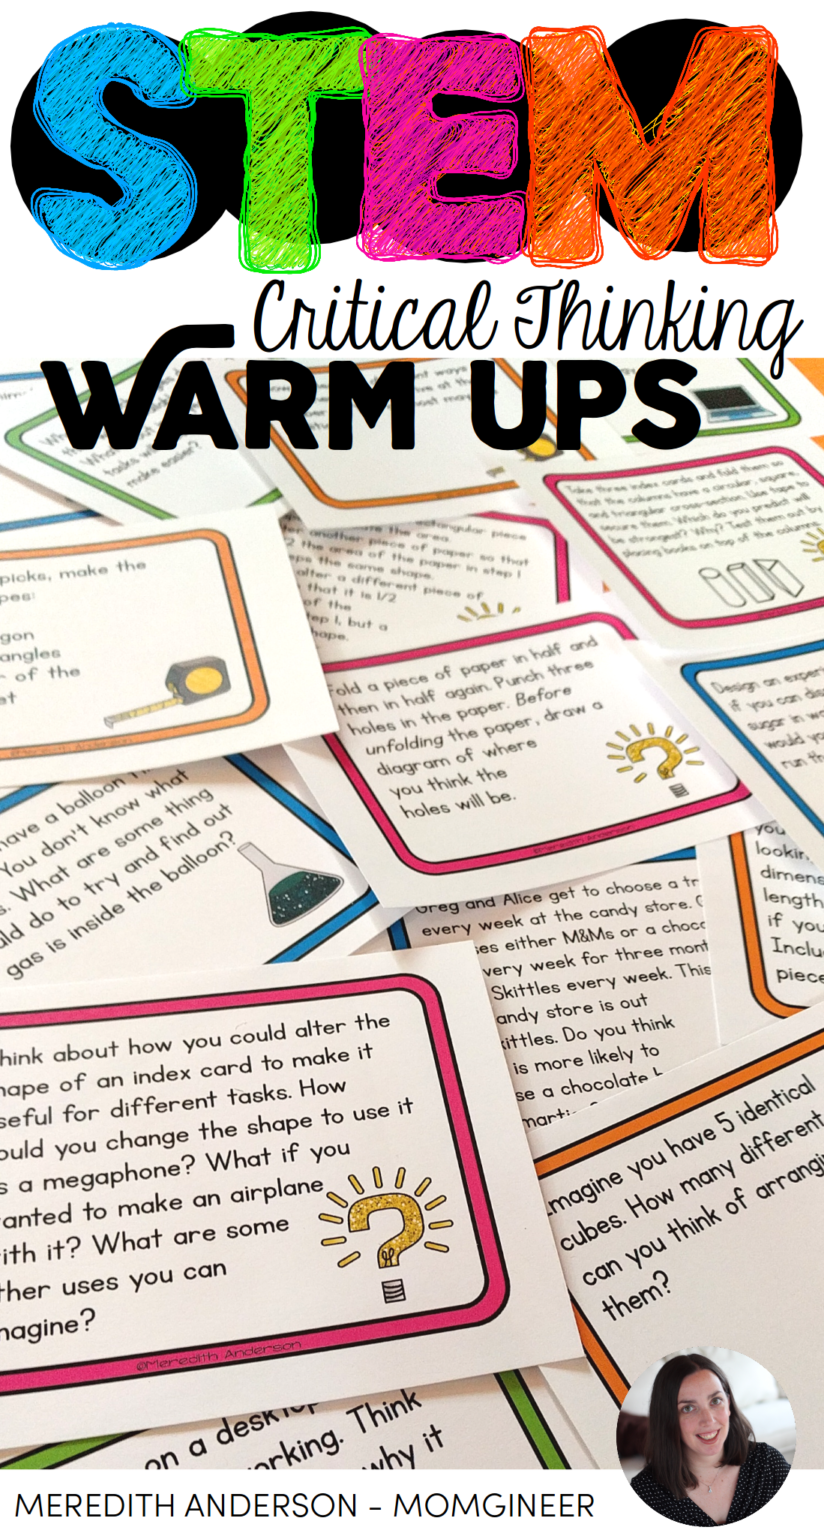 STEM
Critical Thinking
WARM UPS
make easier?
Take three index cards and fold them so
that the columns have a circular, square,
and triangular cross-section. Use tape to
secure them. Which do you predict will
be strongest? Why? Test them out by
placing books on top of the columns.
rectangular piece
another piece of paper so that
the area of the paper in step 1
the same shape.
alter a different piece of
that it is 1/2
of the
step 1, but a
shape.
picks, make the
gon
angles
of the
©Meredith Anderson
Fold a piece of paper in half and
then in half again. Punch three
holes in the paper. Before
unfolding the paper, draw a
diagram of where
you think the
holes will be.
©Meredith Anderson
Design an exper
if you can dis
sugar in wa
would yo
run th
have a balloon
You don't know what
What are some thing
ld do to try and find out
gas is inside the balloon?
Greg and Alice get to choose a tr
every week at the candy store.
es either M&Ms or a choco
very week for three mont
Skittles every week. This
andy store is out
kittles. Do you think
is more likely to
se a chocolate
you
lookin
dimens
length
if you
Inclu
piece
hink about how you could alter the
hape of an index card to make it
seful for different tasks. How
ould you change the shape to use it
s a megaphone? What if you
anted to make an airplane
ith it? What are some
ther uses you can
magine?
©Meredith Anderson
Imagine you have 5 identical
cubes. How many different
can you think of arrangi
them?
on a desktop
orking. Think
why it
MEREDITH ANDERSON - MOMGINEER